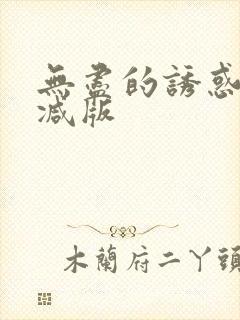 無盡的誘惑
減版
木蘭府二丫頭